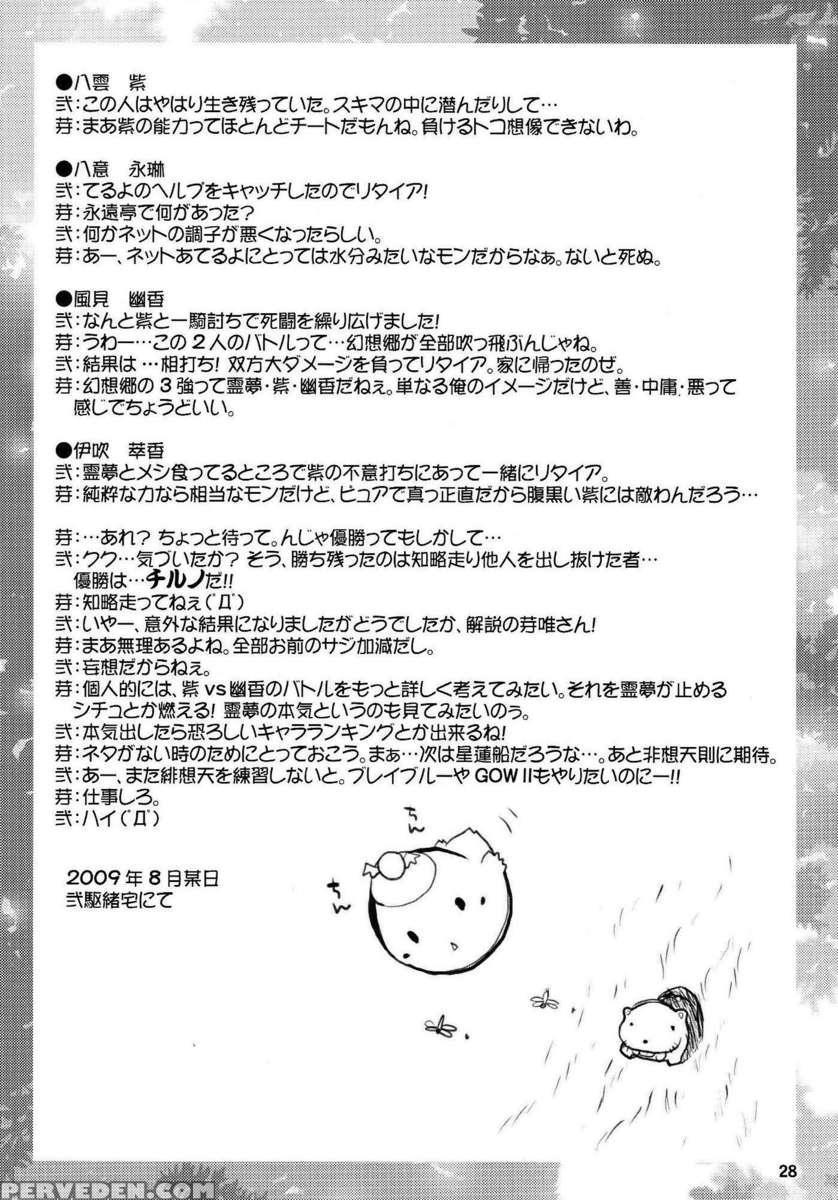 ●八雲　紫
弐：この人はやはり生き残っていた。スキマの中に潜んだりして…
芽：まあ紫の能力ってほとんどチートだもんね。負けるトコ想像できないわ。
●八意　永琳
弐：てるよのヘルプをキャッチしたのでリタイア！
芽：永遠亭で何があった？
弐：何かネットの調子が悪くなったらしい。
芽：あー、ネットあてるよにとっては水分みたいなモンだからなぁ。ないと死ぬ。
●風見　幽香
弐：なんと紫と一騎討ちで死闘を繰り広げました！
芽：うわー…この２人のバトルって…幻想郷が全部吹っ飛ぶんじゃね。
弐：結果は…相打ち！双方大ダメージを負ってリタイア。家に帰ったのぜ。
芽：幻想郷の３強って霊夢・紫・幽香だねぇ。単なる俺のイメージだけど、善・中庸・悪って
感じでちょうどいい。
●伊吹　萃香
弐：霊夢とメシ食ってるところで紫の不意打ちにあって一緒にリタイア。
芽：純粋な力なら相当なモンだけど、ピュアで真っ正直だから腹黒い紫には敵わんだろう…
芽：…あれ？ちょっと待って。んじゃ優勝ってもしかして…
弐：クク…気づいたか？そう、勝ち残ったのは知略走り他人を出し抜けた者…
優勝は…チルノだ!!
芽：知略走ってねぇ(ﾟДﾟ)
弐：いやー、意外な結果になりましたがどうでしたか、解説の芽唯さん！
芽：まあ無理あるよね。全部お前のサジ加減だし。
弐：妄想だからねぇ。
芽：個人的には、紫vs幽香のバトルをもっと詳しく考えてみたい。それを霊夢が止める
シチュとか燃える！霊夢の本気というのも見てみたいのぅ。
弐：本気出したら恐ろしいキャラランキングとか出来るね！
芽：ネタがない時のためにとっておこう。まぁ…次は星蓮船だろうな…。あと非想天則に期待。
弐：あー、また緋想天を練習しないと。ブレイブルーやGOWⅡもやりたいのにー!!
芽：仕事しろ。
弐：ハイ(ﾟДﾟ)
2009年８月某日
弐駆緒宅にて
ちん
ちん
28
PERVEDEN.COM